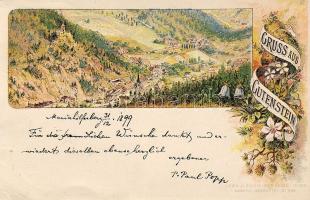 GRUSS AUS
GUTENSTEIN
Mariahilfberg 31/12 1899
Für die freundlichen Wünsche dankt und er-
wiedert dieselben ebenso herzlich
ergebener
P. Paul Popp